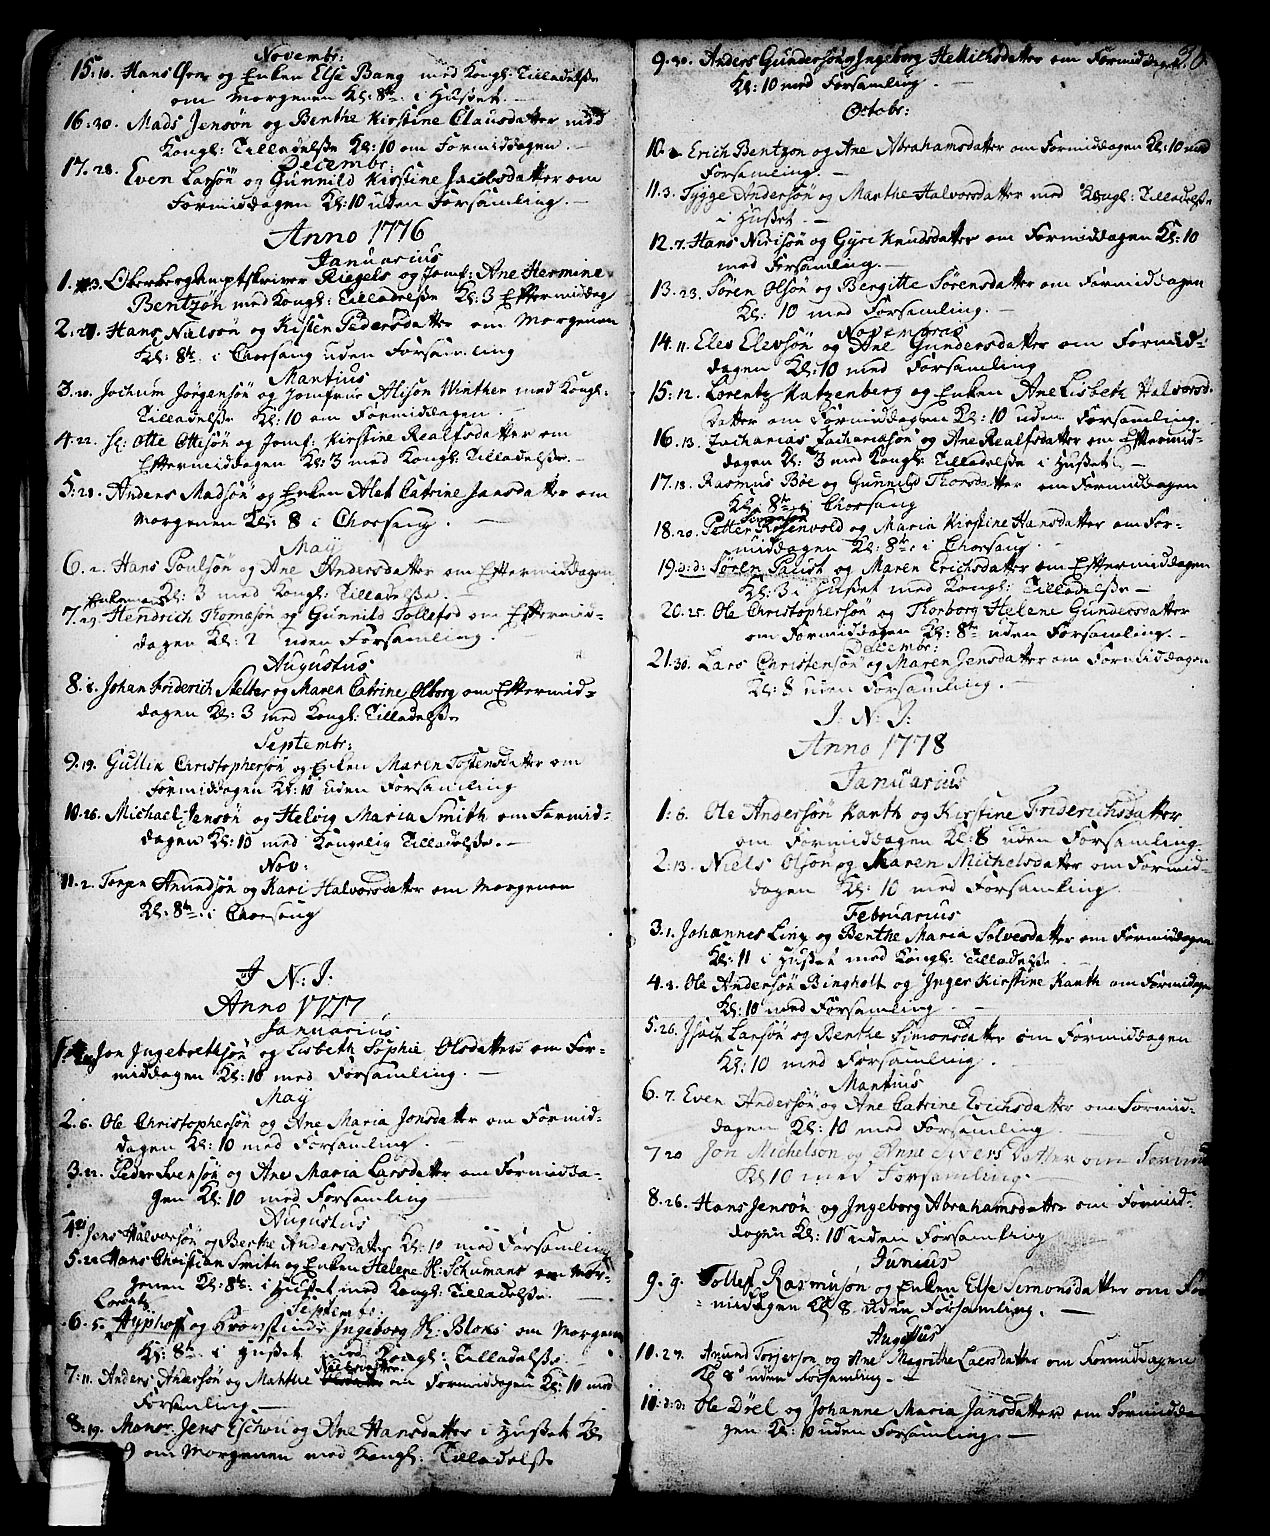 Novembr:
15. 10. Hans Øen og Enken Else Bang med Kongl: Tilladelße
om Morgenen Kl: 8te i Hußet. —
16. 30. Mads Jensøn og Benthe Kirstine Clausdatter med
Kongl: Tilladelße Kl: 10 om Formiddagen. —
Decembr:
17. 28. Even Larsøn og Gunnild Kirstine Jacobsdatter om
Formiddagen Kl: 10 uden Forsamling. —
Anno 1776
Januarius
1. 3. Oberbergamptskriver Riegels og Jomf: Ane Hermine
Bentzøn med Kongl: Tilladelße Kl: 3 Eftermiddag
2. Hans Nielsøn og Kisten Pedersdatter om Morgenen
Kl: 8te i Chorsang uden Forsamling
Martius
3. 20. Jochum Jørgensøn og Jomfrue Alison Winther med Kongl:
Tilladelße Kl: 10 om Formiddagen.
4. 22. Sr: Otte Ottisøn og Jomf: Kirstine Realfsdatter om
Eftermiddagen Kl: 3 med Kongl: Tilladelße. —
5. 28. Anders Madsøn og Enken Alet Catrine Jansdatter om
Morgenen Kl: 8 i Chorsang. —
May
6. 2. Hans Poulsøn og Ane Andersdatter om Eftermiddagen
Kl: 3 med Kongl: Tilladelße. —
Enkeman
7. 29. Hendrich Thomasøn og Gunnild Tollefsd om Eftermid-
dagen Kl: 2 uden Forsamling. —
Augustus
8. 6. Johan Friderich Stelter og Maren Catrine Olborg om Eftermid-
dagen Kl: 3 med Kongl: Tilladelße
Septembr:
9. 19. Gullik Christophersøn og Enken Maren Tostensdatter om
Formiddagen Kl: 10 uden Forsamling
10. 26. Michael Jensøn og Helvig Maria Smith om Formid-
dagen Kl: 10 med Kongelig Tilladelße. —
Nov:
11. 2. Torgen Anundsøn og Kari Halvorsdatter om Morgenen
Kl: 8te i Chorsang
J. N. J:
Anno 1777
Januarius
1. Jon Ingebretsøn og Lisbeth Sophie Olsdatter om For-
middagen Kl: 10 med Forsamling. —
May
2. 6. Ole Christophersøn og Ane Maria Jonsdatter om Formid-
dagen Kl: 10 med Forsamling. —
3. 22. Peder Svensøn og Ane Maria Larsdatter om Formidda-
gen Kl: 10 med Forsamling —
Augustus
4. 21 Jens Halvorsøn og Berthe Andersdatter Kl: 10 med Forsamling
5. 22 Hans Christian Smith og Enken Helene Sl: Schumans om Mor-
genen Kl: 8te i Hußet med Kongl: Tilladelße
Septembr:
Lorentz
6. 5. Hyphoff og Ingeborg Sl: Bloks om Morgenen
Kl: 8te i Hußet med Kongl: Tilladelße. —
Nielsdatter
7. 11. Anders Andersøn og Mahthe om Formiddagen Kl: 10 med
Forsamling. —
8. 19. Monsr. Jens Eschou og Ane Hansdatter i Hußet Kl:
9 om Morgenen med Kongl: Tilladelße
9. 30. Anders Gundersøn og Ingeborg Hellichsdatter om Formiddagen
Kl: 10 med Forsamling
Octobr:
10. Erich Bentzon og Ane Abrahamsdatter om Formiddagen Kl: 10 med
Forsamling. —
11. 3. Tygge Andersøn og Marthe Halvorsdatter med Kongl: Tilladelße
i Hußet. —
12. 7. Hans Nirisøn og Gyri Knudsdatter om Formiddagen Kl: 10
med Forsamling. —
13. 23. Søren Olsøn og Bergitte Sørensdatter om Formiddagen
Kl: 10 med Forsamling. —
Novembris
14. 11. Eles Elevsøn og Ane Gundersdatter om Formid-
dagen Kl: 10 med Forsamling
15. 12. Lorentz Katzenberg og Enken Ane Lisbeth Halvorsd-
datter om Formiddagen Kl: 10 uden Forsamling.
16. 13. Zacharias Zachariasøn og Ane Realfsdatter om Eftermid-
dagen Kl: 3 med Kongl: Tilladelße i Hußet. —
17. 18. Rasmus Bøe og Gunnild Thorsdatter om Formiddagen
Kl: 8te i Chorsang
18. 20. Petter Rosenvold og Maria Kirstine Hansdatter om For-
middagen Kl: 8te i Chorsang. —
19. d: d: Søren Paust og Maren Erichsdatter om Eftermiddagen
Kl: 3 i Hußet med Kongl: Tilladelße —
20. 25. Ole Christophersøn og Thorborg Helene Gundersdatter
om Formiddagen Kl: 8te uden Forsamling. —
Decembr:
21. 30. Lars Christensøn og Maren Jensdatter om Formiddagen
Kl: 8 uden Forsamling. —
J. N. J:
Anno 1778
Januarius
1. 6. Ole Andersøn Kanth og Kirstine Friderichsdatter
om Formiddagen Kl: 8 uden Forsamling.
2. 13. Niels Olsøn og Maren Michelsdatter om Formid-
dagen Kl: 10 med Forsamling
Februarius
3. 1. Johannes Ling og Benthe Maria Solvesdatter om Formiddagen
Kl: 11 i Hußet med Kongl: Tilladelße
4. 3. Ole Andersøn Bingholt og Inger Kirstine Kanth om Formiddagen
Kl: 10 med Forsamling —
5. 26. Isach Larsøn og Benthe Simonsdatter om Formiddagen
Kl: 10 med Forsamling.
Martius
6. 7. Even Andersøn og Ane Catrine Erichsdatter om Formid-
dagen Kl: 10 med Forsamling
7 20 Jon Michelson og Anne Sivers Datter om Formid
Kl 10 med Forsamling. —
8. 26. Hans Jensøn og Ingeborg Abrahamsdatter om Formid-
dagen Kl: 10 uden Forsamling
Junius
9. 9. Tollef Rasmusøn og Enken Else Simonsdatter om For
middagen Kl 8 uden Forsamling. —
Augustus
10. 27. Amund Torjerson og Ane Magrithe Laersdatter om Formiddagen
Kl 8 uden Forsamling. —
10. d: d: Ole Døel og Johanne Maria Jansdatter om Formidda
gen Kl: 10 uden Forsamling. —